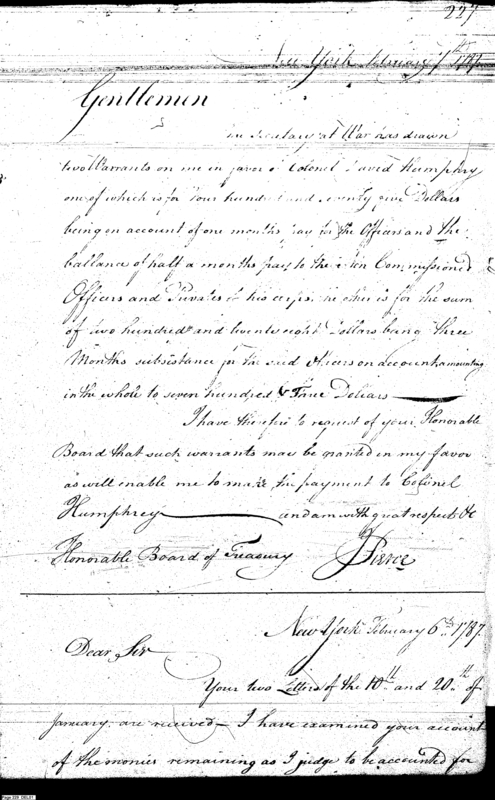 227
New York February 7th 1787
Gentlemen
The Secretary at War has drawn
two Warrants on me in favor of Colonel David Humphry
one of which is for Four hundred and seventy five Dollars
being on account of one months pay for the Officers and the
ballance of half a months pay to the Non Commissioned
Officers and Privates of his corps. the other is for the sum
of two hundred and twenty eight Dollars being three
Months subsistance for the said Officers on account, amounting
in the whole to seven hundred & Three Dollars
I have therefore to request of your Honorable
Board that such warrants may be granted in my favor
as will enable me to make the payment to Colonel
Humphrey and am with great respect &c
Honorable Board of Treasury J Pierce
New York February 6th 1787.
Dear Sir
Your two Letters of the 10th and 20th of
January are received - I have examined your account
of the monies remaining as I judge to be accounted for